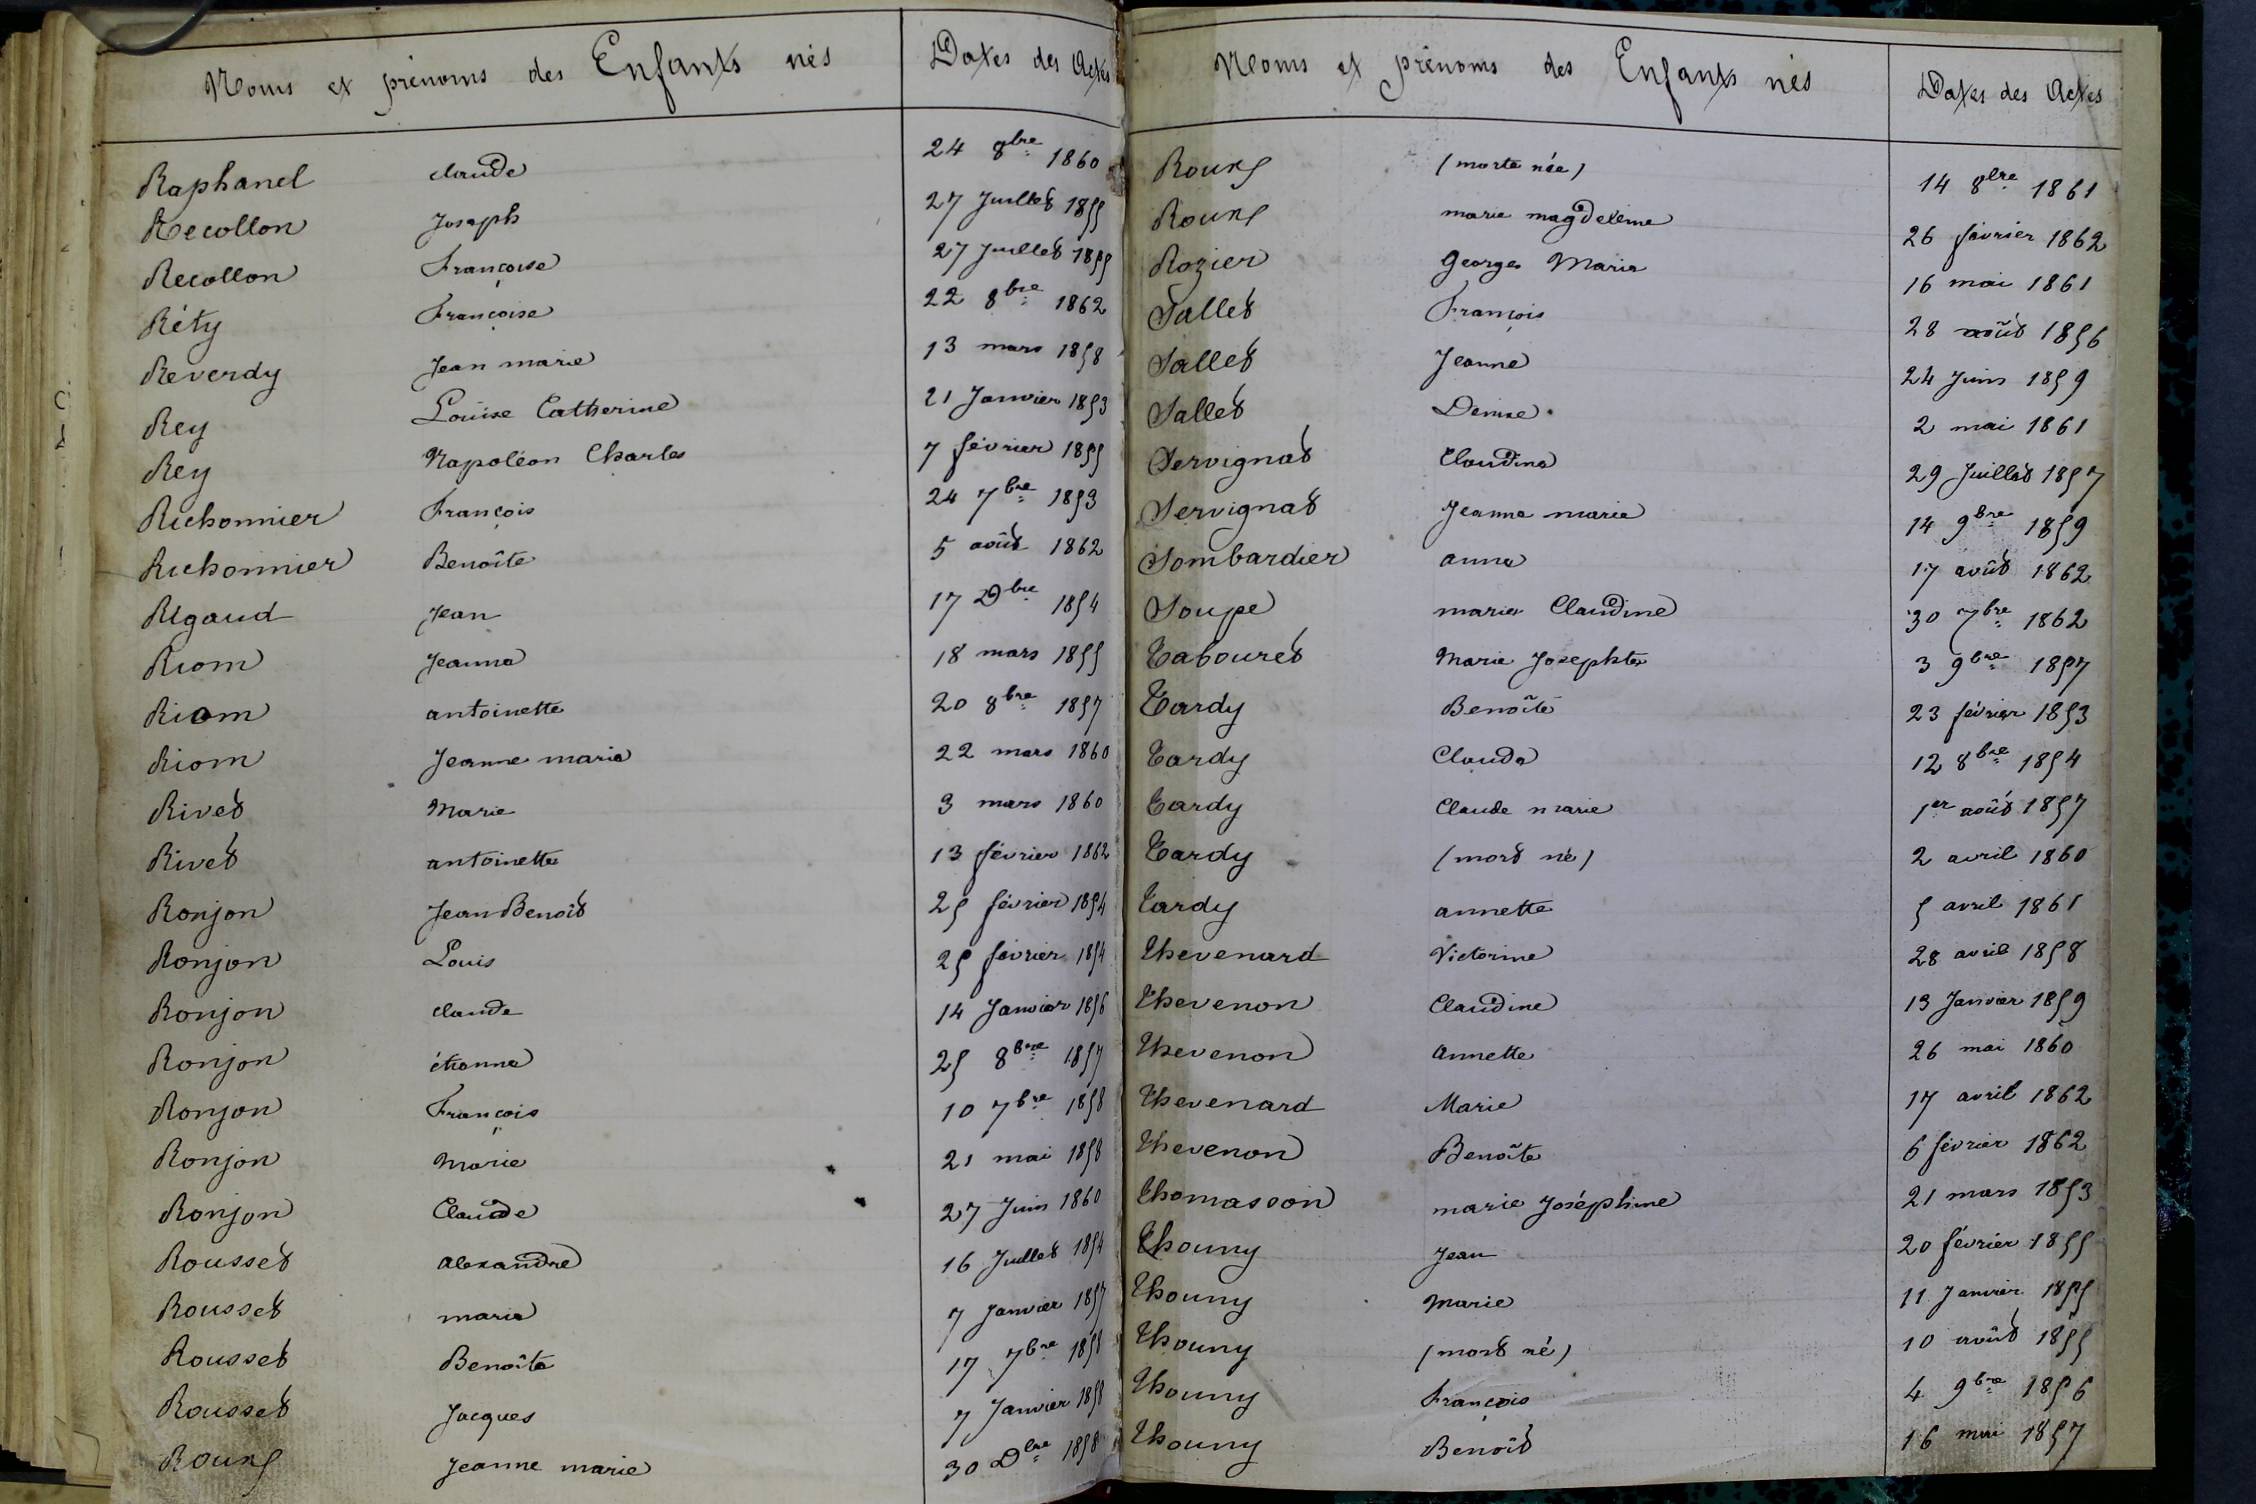 Noms et prénoms des Enfants nés Dates des Actes
Raphanel claude 24 8bre 1860
Recollon Joseph 27 Juillet 1855
Recollon Françoise 27 Juillet 1855
Réty Françoise 22 8bre 1862
Reverdy Jean marie 13 mars 1858
Rey Louise Catherine 21 Janvier 1853
Rey Napoléon Charles 7 février 1855
Richonnier François 24 7bre 1853
Richonnier Benoîte 5 août 1862
Rigaud Jean 17 Dbre 1854
Riom Jeanne 18 mars 1855
Riom antoinette 20 8bre 1857
Riom Jeanne marie 22 mars 1860
Rivet Marie 3 mars 1860
Rivet antoinette 13 février 1862
Ronjon Jean Benoît 25 février 1854
Ronjon Louis 25 février 1854
Ronjon claude 14 Janvier 1856
Ronjon étienne 25 8bre 1857
Ronjon François 10 7bre 1858
Ronjon Marie 21 mai 1858
Ronjon Claude 27 Juin 1860
Rousset alexandre 16 Juillet 1854
Rousset marie 7 Janvier 1857
Rousset Benoîte 17 7bre 1858
Rousset Jacques 7 Janvier 1858
Roux Jeanne marie 30 Dbre 1858
Noms et prénoms des Enfants nés Dates des Actes
Roux (morte née) 14 8bre 1861
Roux marie magdeleine 26 février 1862
Rozier Georges Marie 16 mai 1861
Sallet François 28 août 1856
Sallet Jeanne 24 Juin 1859
Sallet Denise 2 mai 1861
Servignat Claudine 29 Juillet 1857
Servignat Jeanne marie 14 9bre 1859
Sombardier anne 17 août 1862
Soupe marie Claudine 30 7bre 1862
Tabouret Marie Josephte 3 9bre 1857
Tardy Benoîte 23 février 1853
Tardy Claude 12 8bre 1854
Tardy Claude marie 1er août 1857
Tardy (mort né) 2 avril 1860
Tardy annette 5 avril 1861
Thevenard Victorine 28 avril 1858
Thevenon Claudine 13 Janvier 1859
Thevenon annette 26 mai 1860
Thevenard Marie 17 avril 1862
Thevenon Benoîte 6 février 1862
Thomasson marie Joséphine 21 mars 1853
Thouny Jean 20 février 1855
Thouny Marie 11 Janvier 1855
Thouny (mort né) 10 août 1855
Thouny François 4 9bre 1856
Thouny Benoît 16 mai 1857